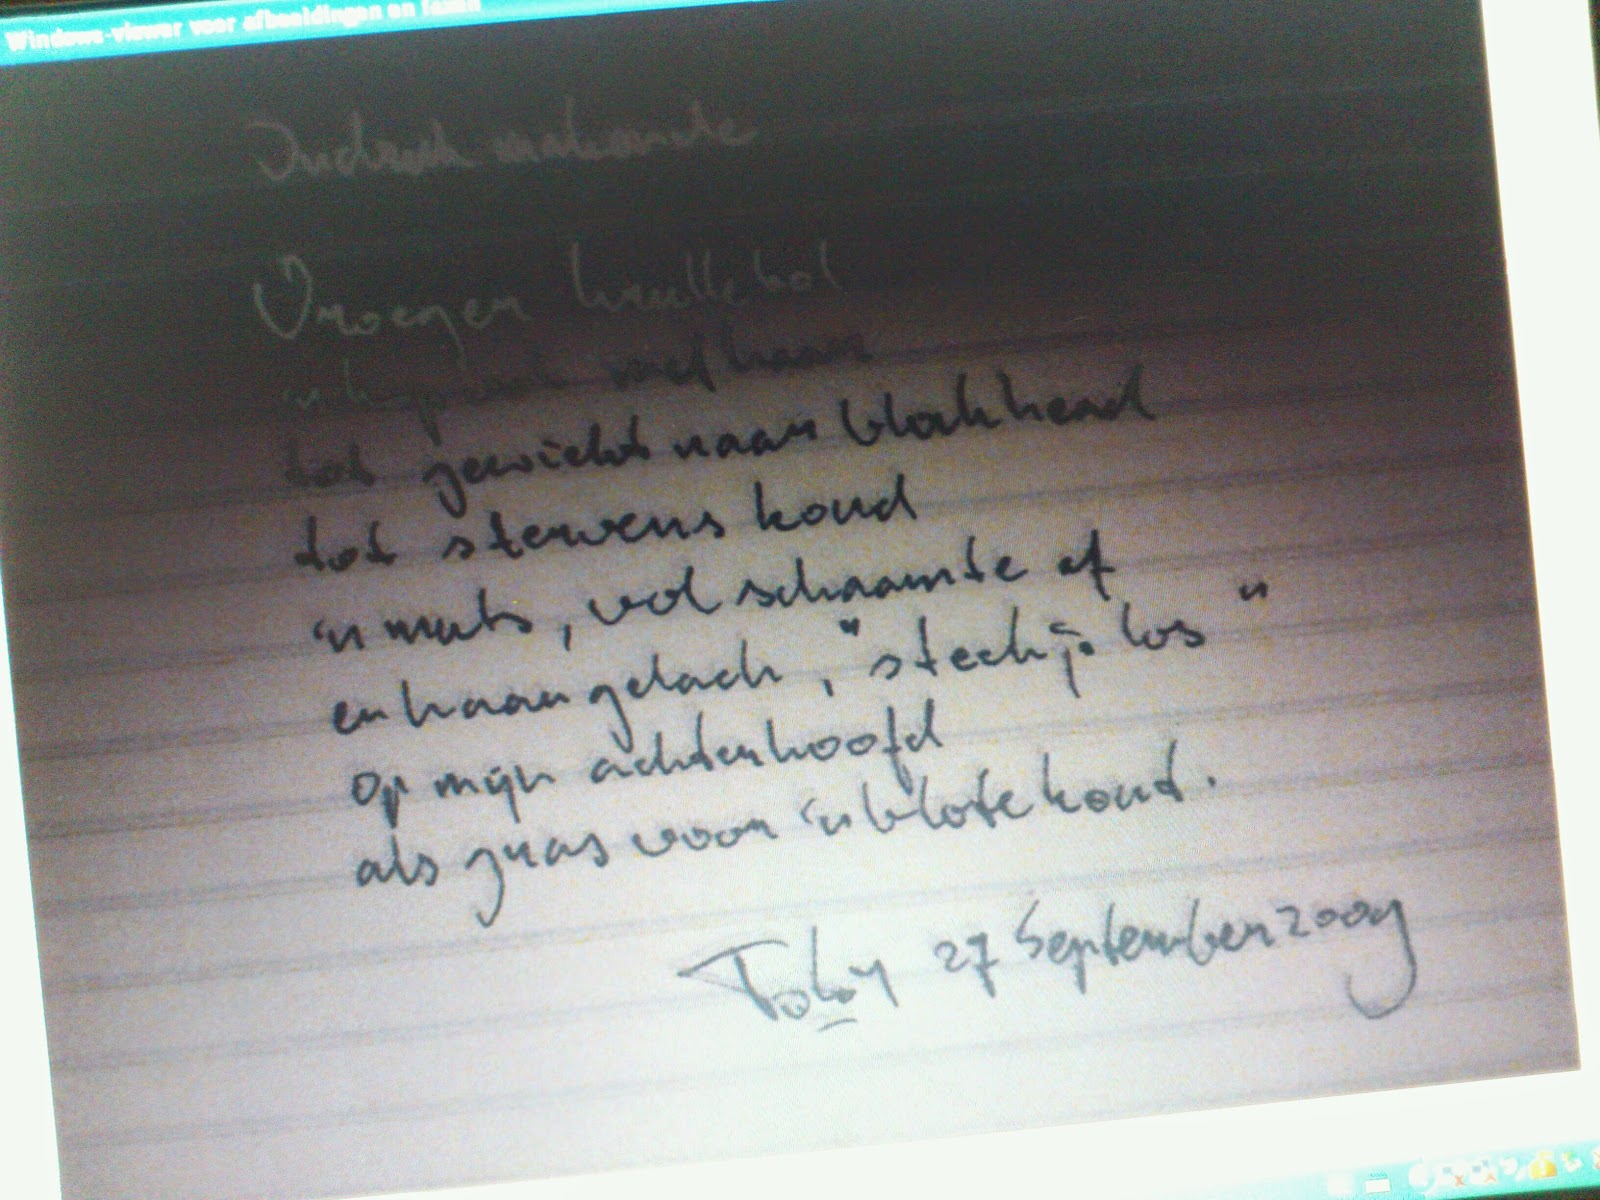 Windows-viewer voor afbeeldingen en faxen
Indruk makende
Vroeger krullebol
'n kip met haar
tot gewicht naar blokhead
tot stervens koud
'n muts, vol schaamte af
en haar gelach, "steek je los"
op mijn achterhoofd
als gras voor 'n blote kont.
27 September 2009